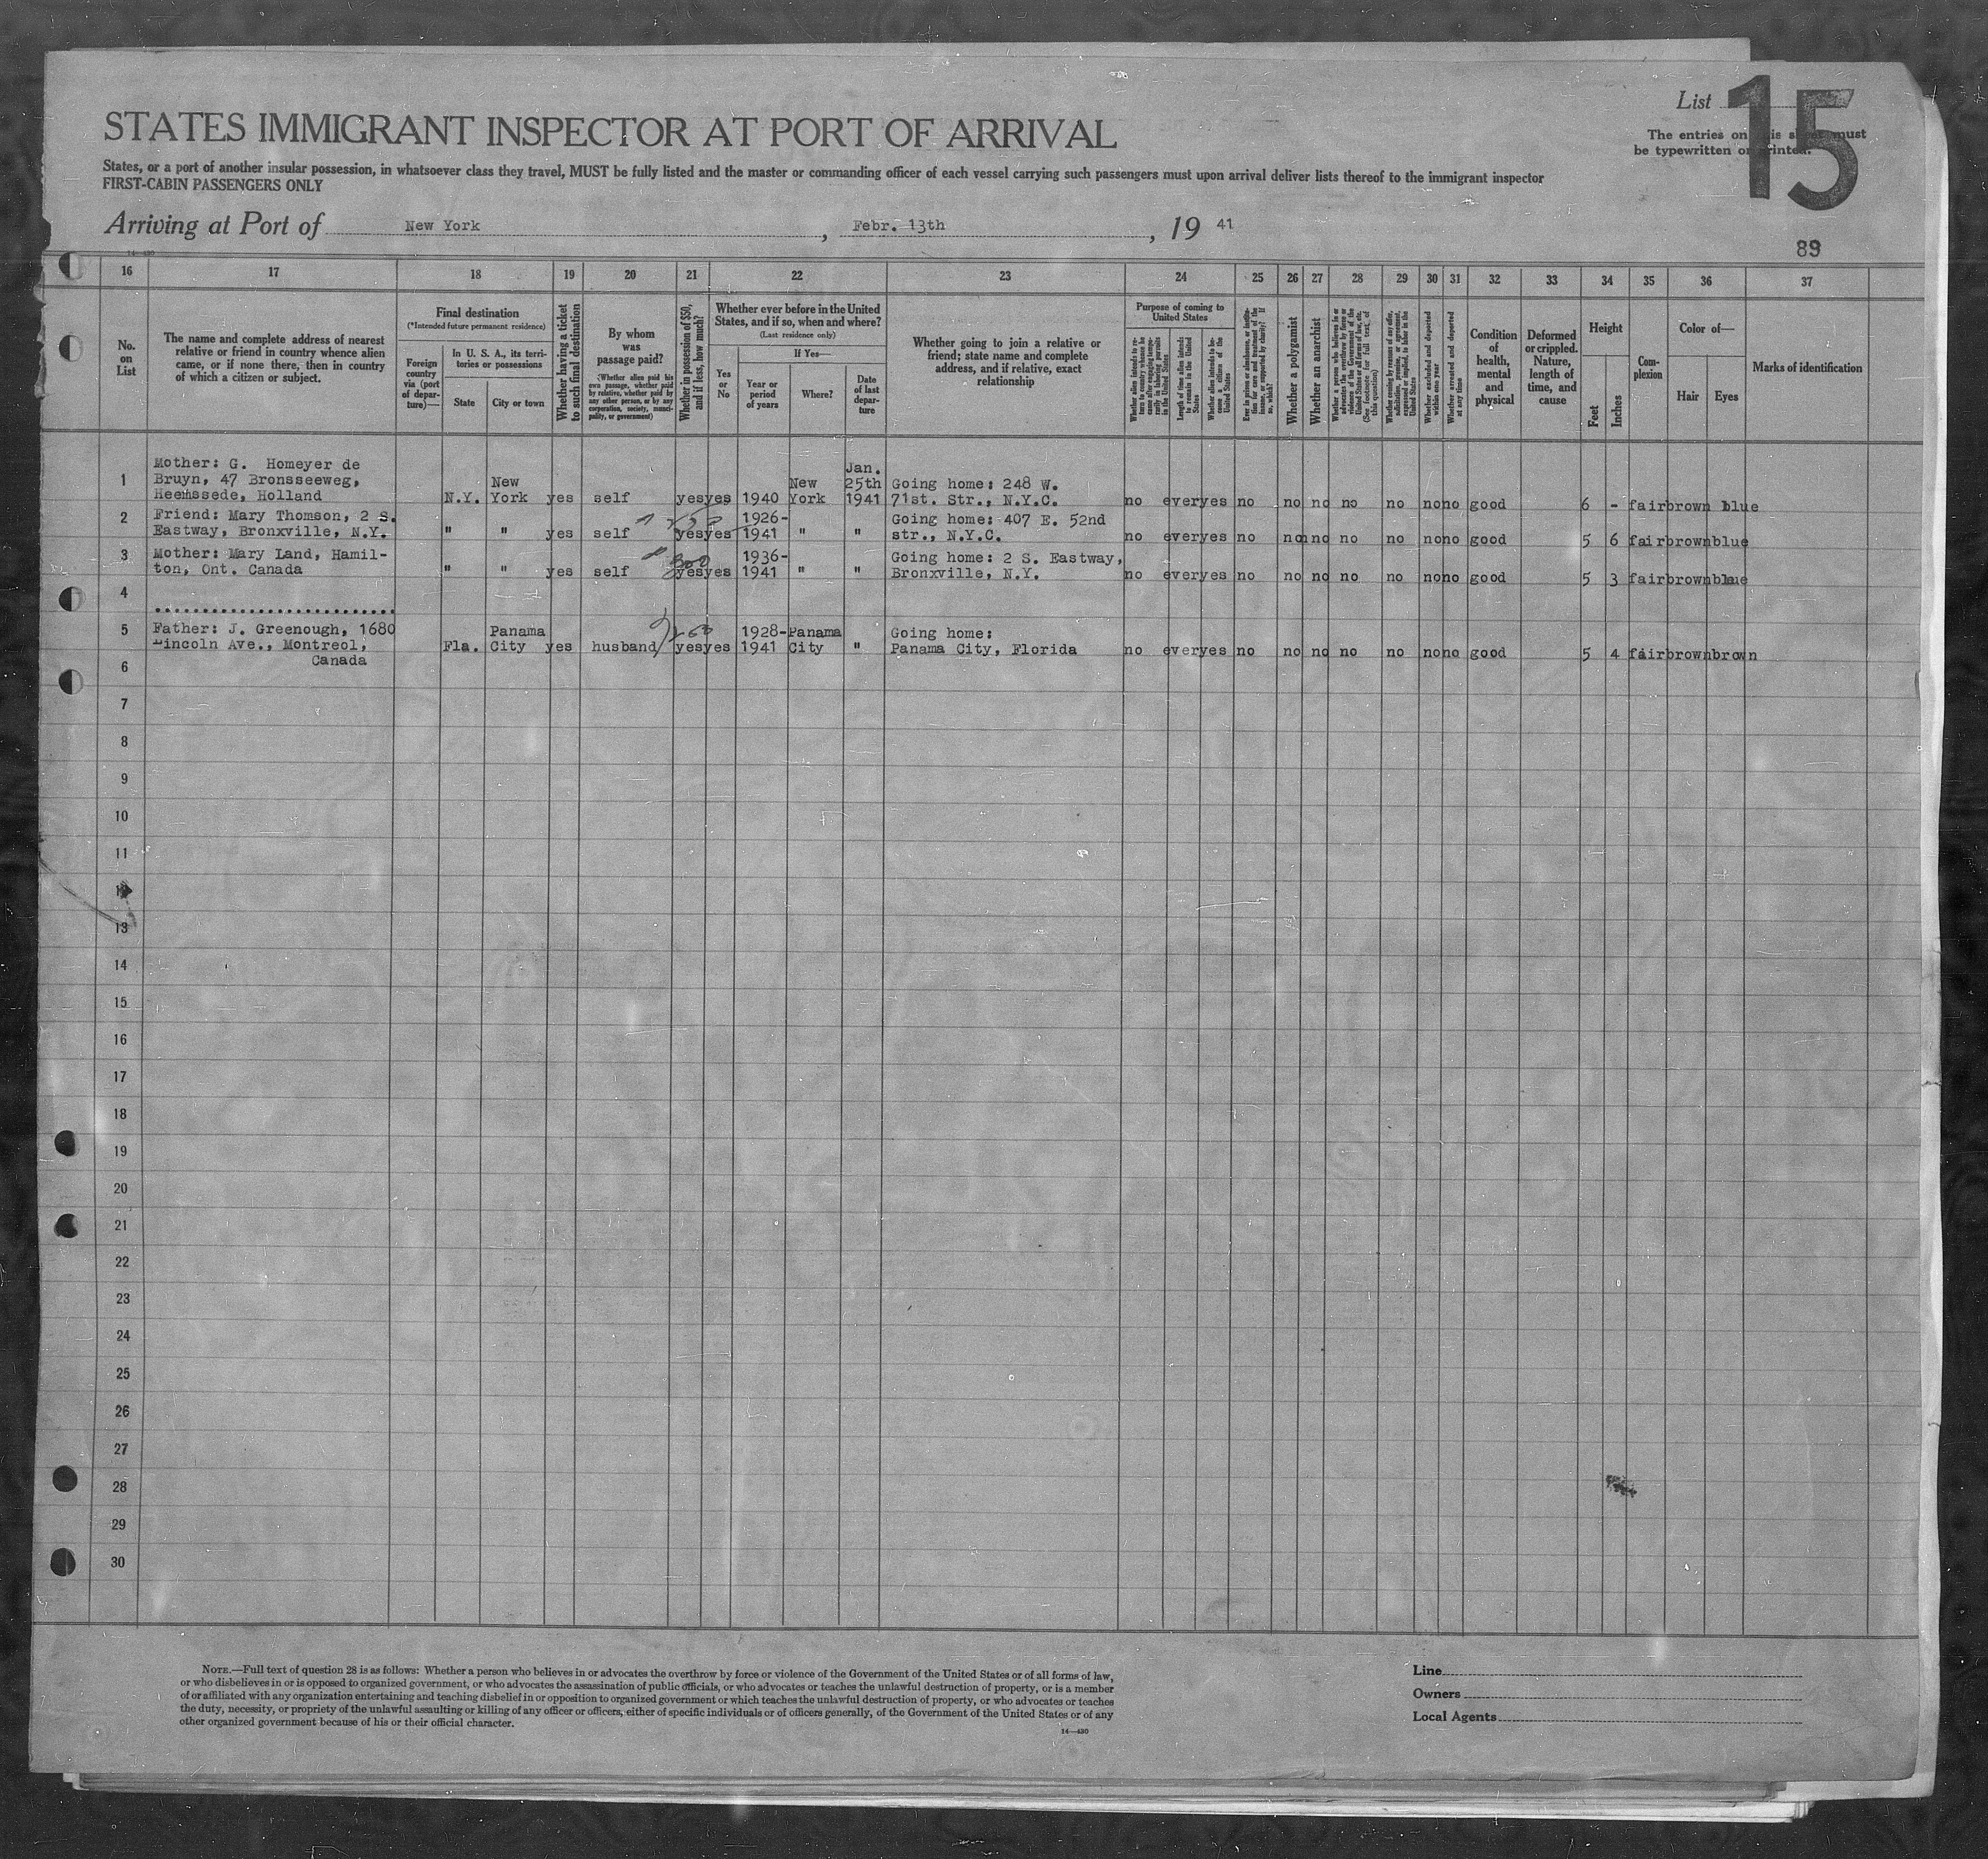 List 15
STATES IMMIGRANT INSPECTOR AT PORT OF ARRIVAL
The entries on this sheet must
be typewritten or printed.
States, or a port of another insular possession, in whatsoever class they travel, MUST be fully listed and the master or commanding officer of each vessel carrying such passengers must upon arrival deliver lists thereof to the immigrant inspector
FIRST-CABIN PASSENGERS ONLY
Arriving at Port of New York, Febr. 13th, 19 41
89
14—430
16 17 18 19 20 21 22 23 24 25 26 27 28 29 30 31 32 33 34 35 36 37
No.
on
List
The name and complete address of nearest
relative or friend in country whence alien
came, or if none there, then in country
of which a citizen or subject.
Final destination
(*Intended future permanent residence)
Foreign
country
via (port
of depar-
ture)—
In U. S. A., its terri-
tories or possessions
State
City or town
Whether having a ticket
to such final destination
By whom
was
passage paid?
(Whether alien paid his
own passage, whether paid
by relative, whether paid by
any other person, or by any
corporation, society, munici-
pality, or government)
Whether in possession of $50,
and if less, how much?
Whether ever before in the United
States, and if so, when and where?
(Last residence only)
Yes
or
No
If Yes—
Year or
period
of years
Where?
Date
of last
depar-
ture
Whether going to join a relative or
friend; state name and complete
address, and if relative, exact
relationship
Purpose of coming to
United States
Whether alien intends to re-
turn to country whence he
came after engaging tempo-
rarily in laboring pursuits
in the United States
Length of time alien intends
to remain in the United
States
Whether alien intends to be-
come a citizen of the
United States
Ever in prison or almshouse, or institu-
tion for care and treatment of the
insane, or supported by charity? If
so, which?
Whether a polygamist
Whether an anarchist
Whether a person who believes in or
advocates the overthrow by force or
violence of the Government of the
United States or all forms of law, etc.
(See footnote for full text of
this question)
Whether coming by reason of any offer,
solicitation, promise, or agreement,
expressed or implied, to labor in the
United States
Whether excluded and deported
within one year
Whether arrested and deported
at any time
Condition
of
health,
mental
and
physical
Deformed
or crippled.
Nature,
length of
time, and
cause
Height
Feet
Inches
Com-
plexion
Color of—
Hair
Eyes
Marks of identification
Mother: G. Homeyer de Jan.
1 Bruyn, 47 Bronsseeweg, New New 25th Going home: 248 W.
Heemssede, Holland N.Y. York yes self yes yes 1940 York 1941 71st. Str., N.Y.C. no ever yes no no no no no no no good 6 - fair brown blue
2 Friend: Mary Thomson, 2 S. 1926- Going home: 407 E. 52nd
Eastway, Bronxville, N.Y. " " yes self yes yes 1941 " " str., N.Y.C. no ever yes no no no no no no no good 5 6 fair brown blue
3 Mother: Mary Land, Hamil- 300 1936- Going home: 2 S. Eastway,
ton, Ont. Canada " " yes self yes yes 1941 " " Bronxville, N.Y. no ever yes no no no no no no no good 5 3 fair brown blue
4
5 Father: J. Greenough, 1680 Panama 1928- Panama Going home:
Lincoln Ave., Montreol, Fla. City yes husband yes yes 1941 City " Panama City, Florida no ever yes no no no no no no no good 5 4 fair brown brown
Canada
6
7
8
9
10
11
12
13
14
15
16
17
18
19
20
21
22
23
24
25
26
27
28
29
30
NOTE.—Full text of question 28 is as follows: Whether a person who believes in or advocates the overthrow by force or violence of the Government of the United States or of all forms of law,
or who disbelieves in or is opposed to organized government, or who advocates the assassination of public officials, or who advocates or teaches the unlawful destruction of property, or is a member
of or affiliated with any organization entertaining and teaching disbelief in or opposition to organized government or which teaches the unlawful destruction of property, or who advocates or teaches
the duty, necessity, or propriety of the unlawful assaulting or killing of any officer or officers, either of specific individuals or of officers generally, of the Government of the United States or of any
other organized government because of his or their official character.
14—430
Line
Owners
Local Agents